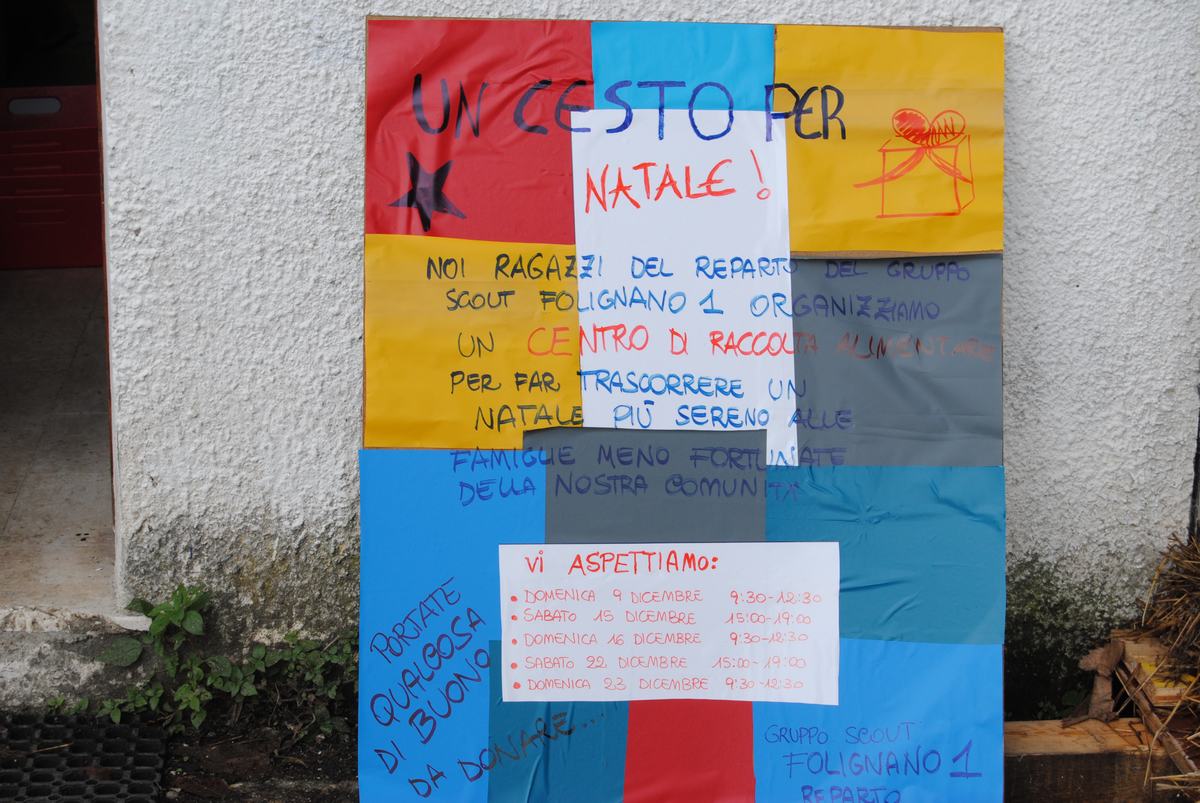 UN CESTO PER
NATALE!
NOI RAGAZZI DEL REPARTO DEL GRUPPO
SCOUT FOLIGNANO 1 ORGANIZZIAMO
UN CENTRO DI RACCOLTA ALIMENTARE
PER FAR TRASCORRERE UN
NATALE PIÙ SERENO ALLE
FAMIGLIE MENO FORTUNATE
DELLA NOSTRA COMUNITÀ
Vi ASPETTIAMO:
• DOMENICA 9 DICEMBRE 9:30-12:30
• SABATO 15 DICEMBRE 15:00-19:00
• DOMENICA 16 DICEMBRE 9:30-12:30
• SABATO 22 DICEMBRE 15:00-19:00
• DOMENICA 23 DICEMBRE 9:30-12:30
PORTATE
QUALCOSA
DI BUONO
DA DONARE...
GRUPPO SCOUT
FOLIGNANO 1
REPARTO